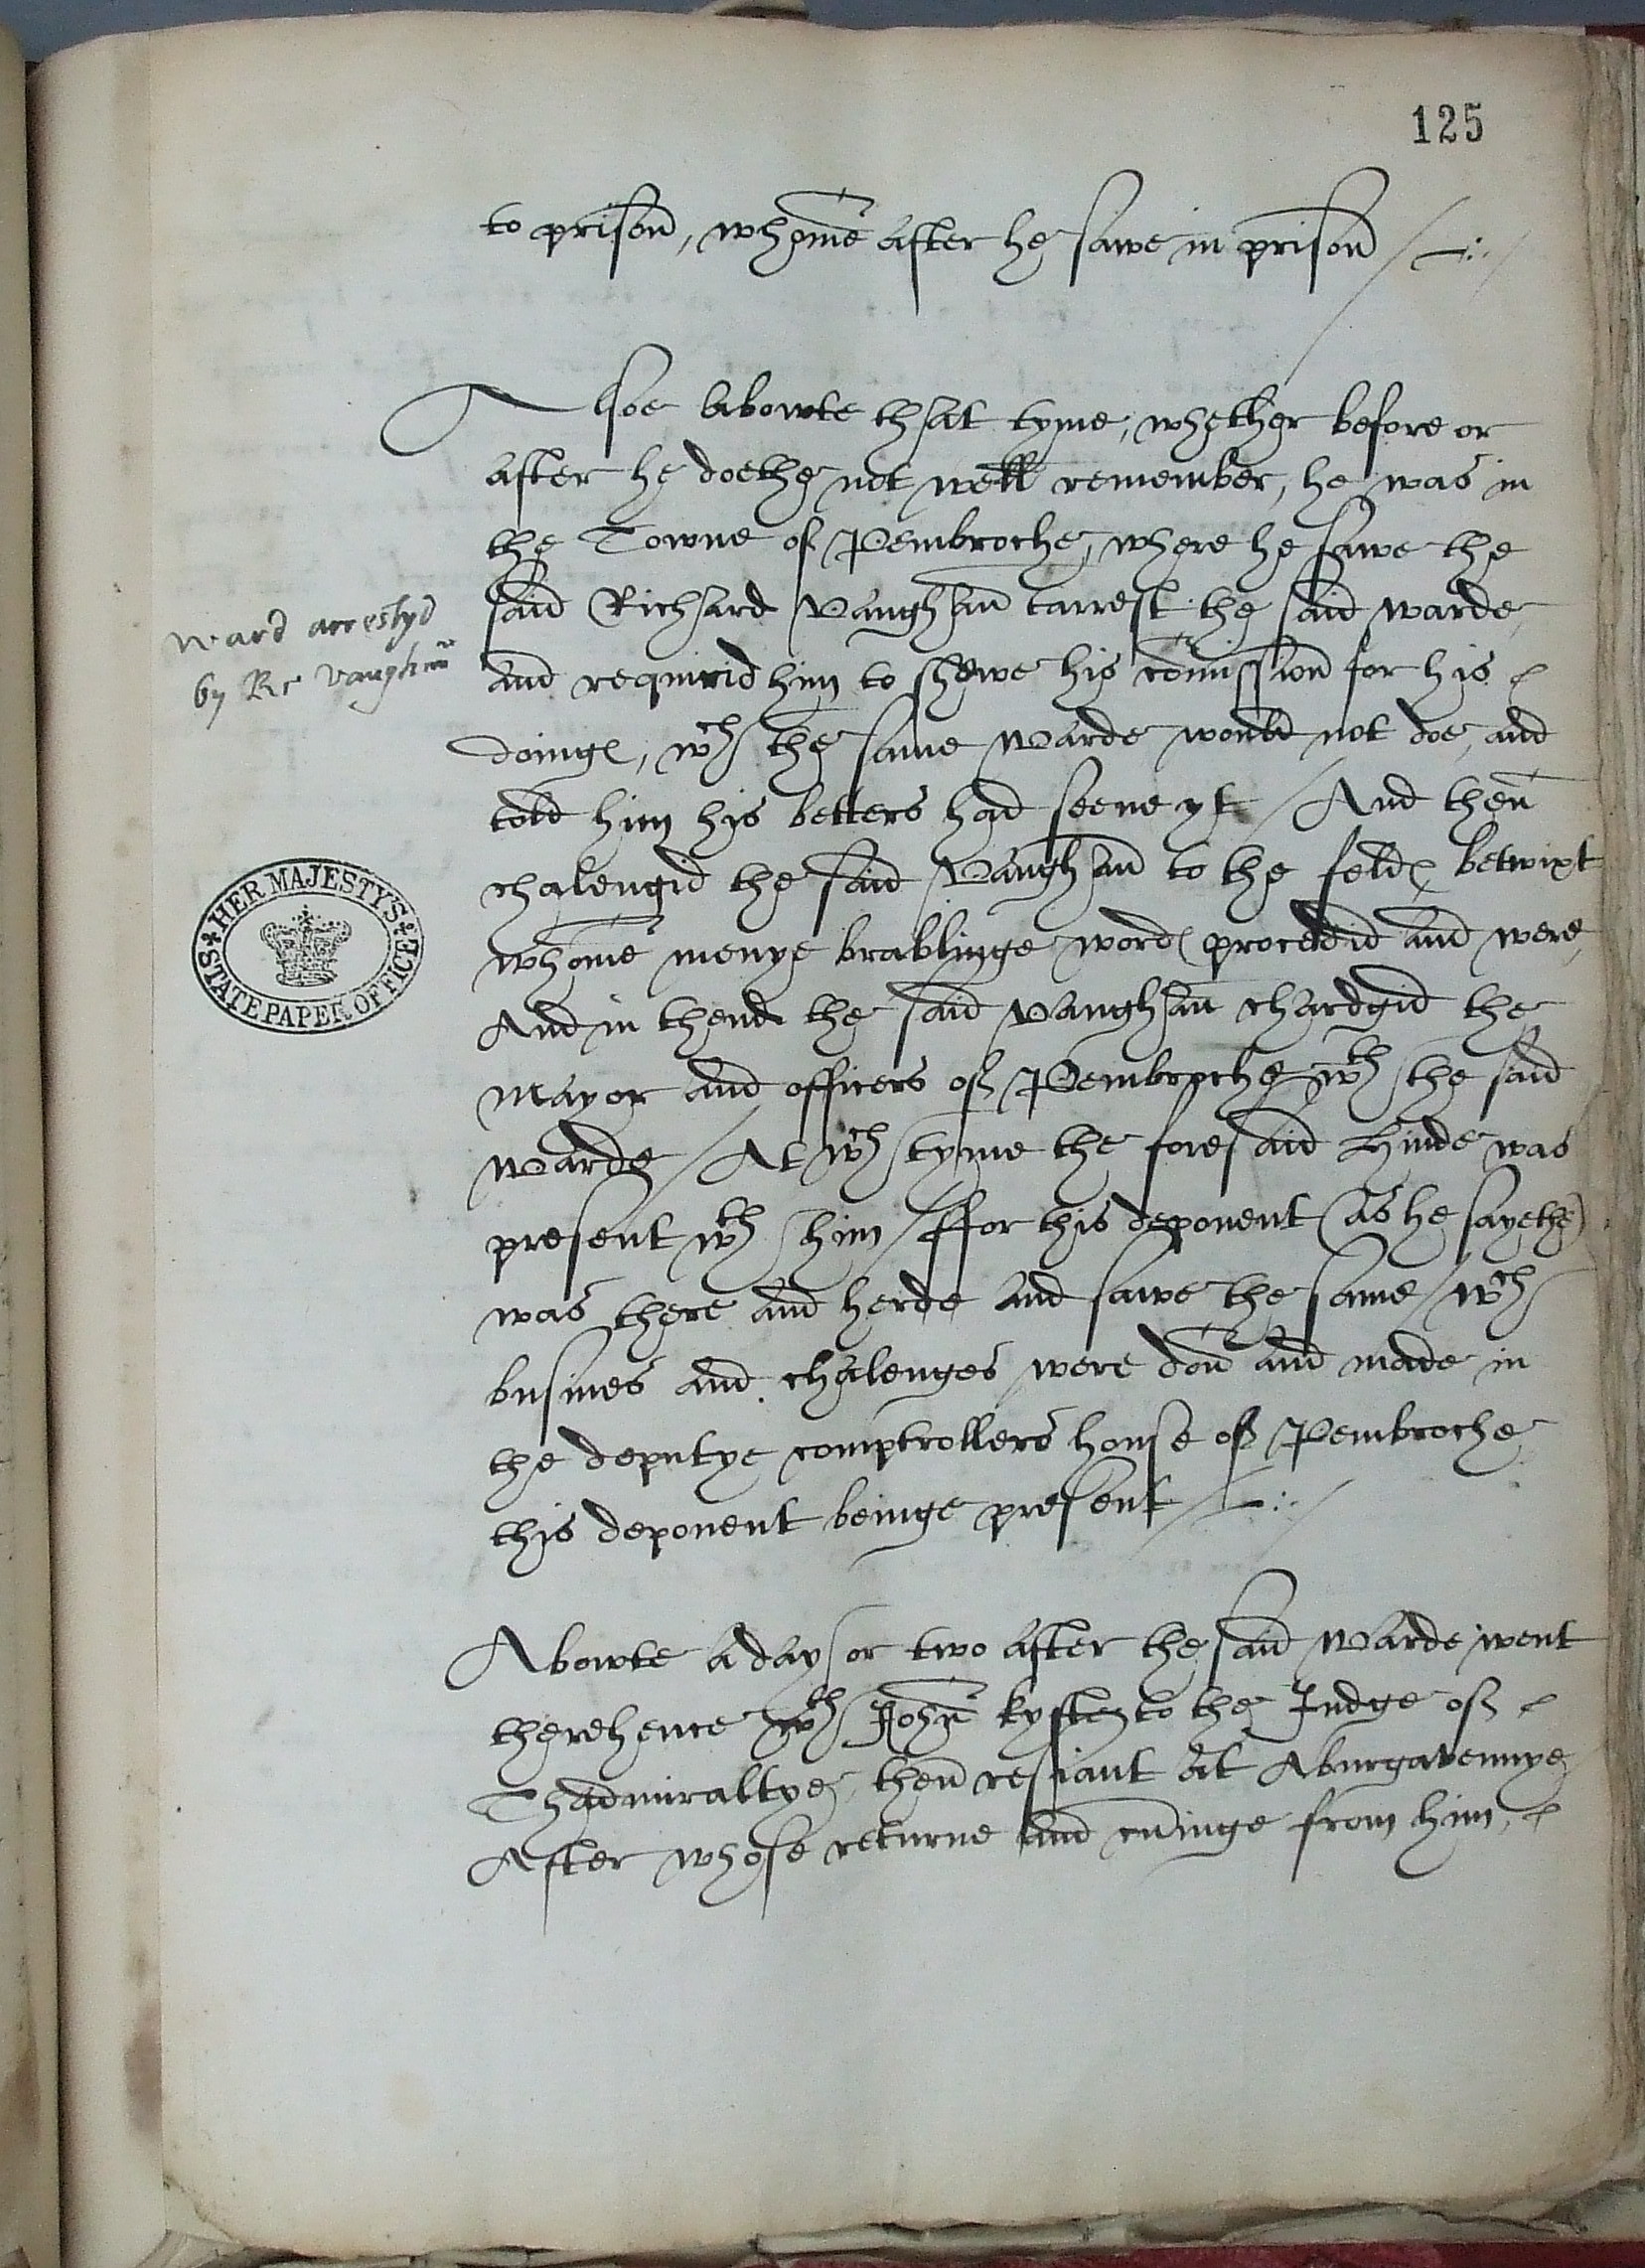 125
to prison, whome after he sawe in prison /
Alsoe abowte that tyme, whether before or
after he doethe not well remember, he was in
the Towne of Pembroche, where he sawe the
said Richard Vaughan tarrest the said warde,
Ward arrestyd
by Rc Vaughan
and requirid him to shewe his comission for his
doinges, wch the same Warde would not doe, and
told him his betters had seene yt / And then
chalengid the said Vaughan to the feld, betwixt
HER MAJESTY'S STATE PAPER OFFICE
whome menye brablinge wordes procedid and were,
And in thende the said Vaughan chardgid the
Mayor and officers of Pembroche wth the said
Warde / At wch tyme the foresaid Hinde was
present wth him / ffor this deponent (as he sayethe)
was there and herde and sawe the same / wch
busines and chalenges were don and made in
the deputye comptrollers house of Pembroche
this deponent beinge present /
Abowte a day or two after the said Warde went
therehence wth John kyfte to the Judge of
Thadmiraltye, then resiant at Aburgavennye
After whose returne and cominge from him,